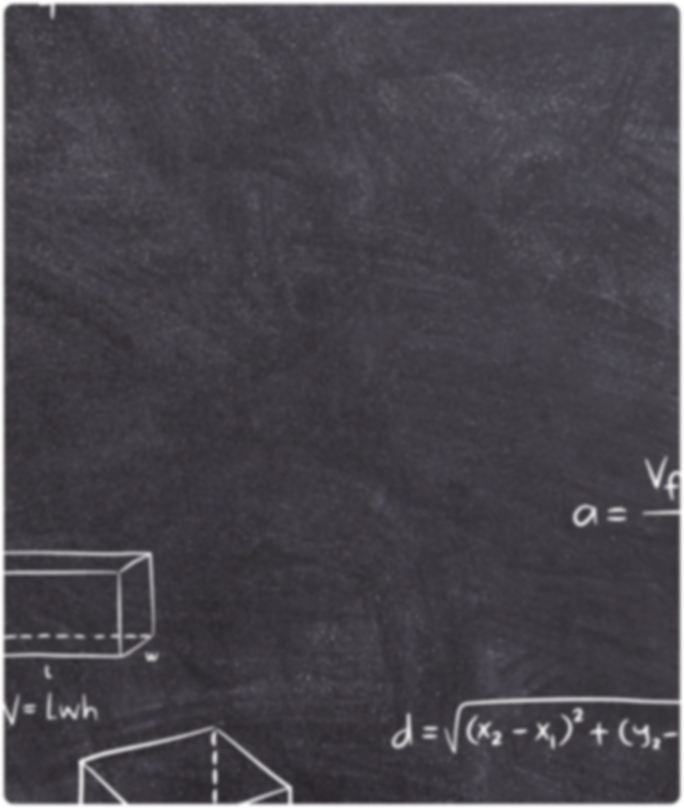 a = Vf
l
w
V = Lwh
d = √(x₂ - x₁)² + (y₂ -